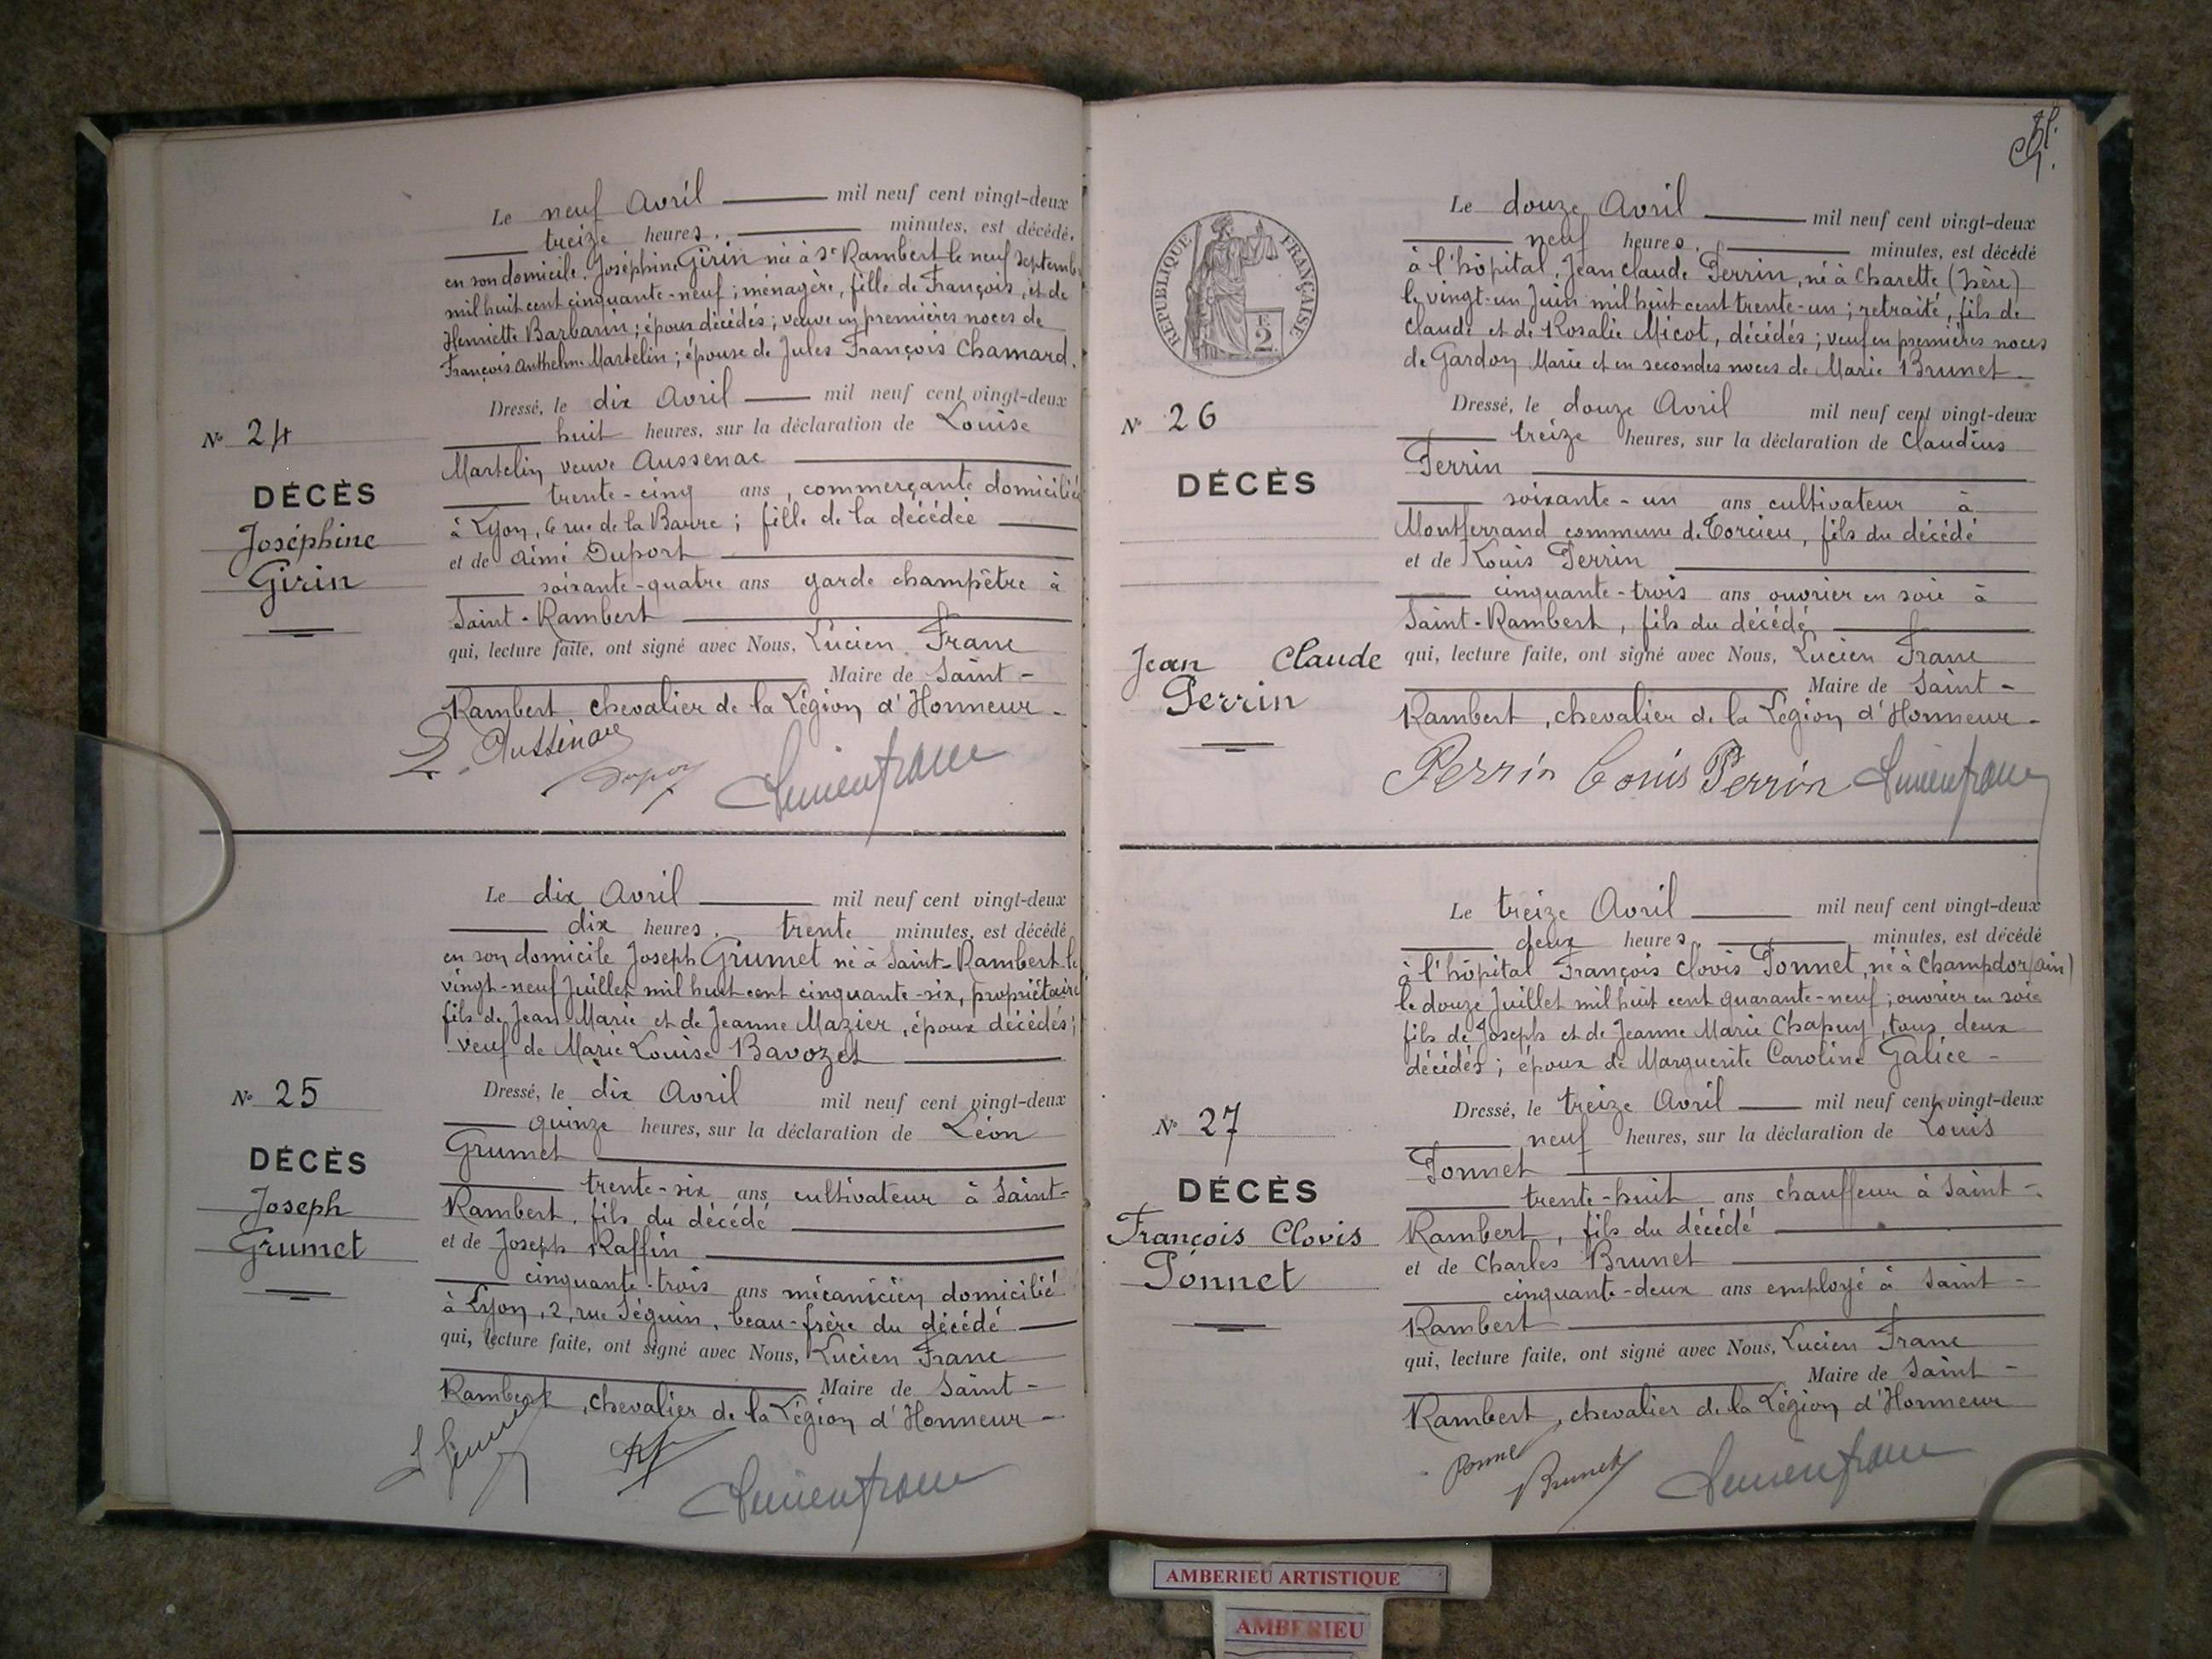 Le neuf Avril mil neuf cent vingt-deux
treize heures, minutes, est décédé,
en son domicile, Joséphine Girin née à St Rambert le neuf Septemb
mil huit cent cinquante-neuf ; ménagère, fille de François, et de
Henriette Barbarin ; époux décédés ; veuve en premières noces de
François Anthelme Martelin ; épouse de Jules François Chamard.
Dressé, le dix Avril mil neuf cent vingt-deux
huit heures, sur la déclaration de Louise
Martelin veuve Aussenac
trente-cinq ans, commerçante domiciliée
à Lyon, 6 rue de la Barre ; fille de la décédée
et de Aimé Duport
soixante-quatre ans garde champêtre à
Saint-Rambert
qui, lecture faite, ont signé avec Nous, Lucien Franc
Maire de Saint-
Rambert chevalier de la Légion d'Honneur-
L. Aussenac
Duport Lucien Franc
N° 24
DÉCÈS
Joséphine
Girin
Le dix Avril mil neuf cent vingt-deux
dix heures, trente minutes, est décédé
en son domicile Joseph Grumet né à Saint-Rambert le
vingt-neuf Juillet mil huit cent cinquante-six, propriétaire
fils de Jean-Marie et de Jeanne Mazier, époux décédés ;
veuf de Marie Louise Bavozet
Dressé, le dix Avril mil neuf cent vingt-deux
quinze heures, sur la déclaration de Léon
Grumet
trente-six ans cultivateur à Saint-
Rambert, fils du décédé
et de Joseph Raffin
cinquante-trois ans mécanicien domicilié
à Lyon, 2, rue Séguin, beau-frère du décédé
qui, lecture faite, ont signé avec Nous, Lucien Franc
Maire de Saint-
Rambert, chevalier de la Légion d'Honneur-
Lucien Franc
N° 25
DÉCÈS
Joseph
Grumet
RÉPUBLIQUE FRANÇAISE
F. 2
Le douze Avril mil neuf cent vingt-deux
neuf heures, minutes, est décédé
à l'hôpital, Jean Claude Perrin, né à Charette (Isère)
le vingt-un Juin mil huit cent trente-un ; retraité, fils de
Claude et de Rosalie Micot, décédés ; veuf en premières noces
de Gardon Marie et en secondes noces de Marie Brunet-
Dressé, le douze Avril mil neuf cent vingt-deux
treize heures, sur la déclaration de Claudius
Perrin
soixante-un ans cultivateur à
Montferrand commune de Torcieu, fils du décédé
et de Louis Perrin
cinquante-trois ans ouvrier en soie à
Saint-Rambert, fils du décédé
qui, lecture faite, ont signé avec Nous, Lucien Franc
Maire de Saint-
Rambert, chevalier de la Légion d'Honneur-
Perrin Louis Perrin Lucien Franc
N° 26
DÉCÈS
Jean Claude
Perrin
Le treize Avril mil neuf cent vingt-deux
deux heures, minutes, est décédé
à l'hôpital François Clovis Ponnet, né à Champdor (Ain)
le douze Juillet mil huit cent quarante-neuf ; ouvrier en soie
fils de Joseph et de Jeanne Marie Chapuy, tous deux
décédés ; époux de Marguerite Caroline Galice-
Dressé, le treize Avril mil neuf cent vingt-deux
neuf heures, sur la déclaration de Louis
Ponnet
trente-huit ans chauffeur à Saint-
Rambert, fils du décédé
et de Charles Brunet
cinquante-deux ans employé à Saint-
Rambert
qui, lecture faite, ont signé avec Nous, Lucien Franc
Maire de Saint-
Rambert, chevalier de la Légion d'Honneur
Ponnet
Brunet Lucien Franc
N° 27
DÉCÈS
François Clovis
Ponnet
AMBERIEU ARTISTIQUE
AMBERIEU